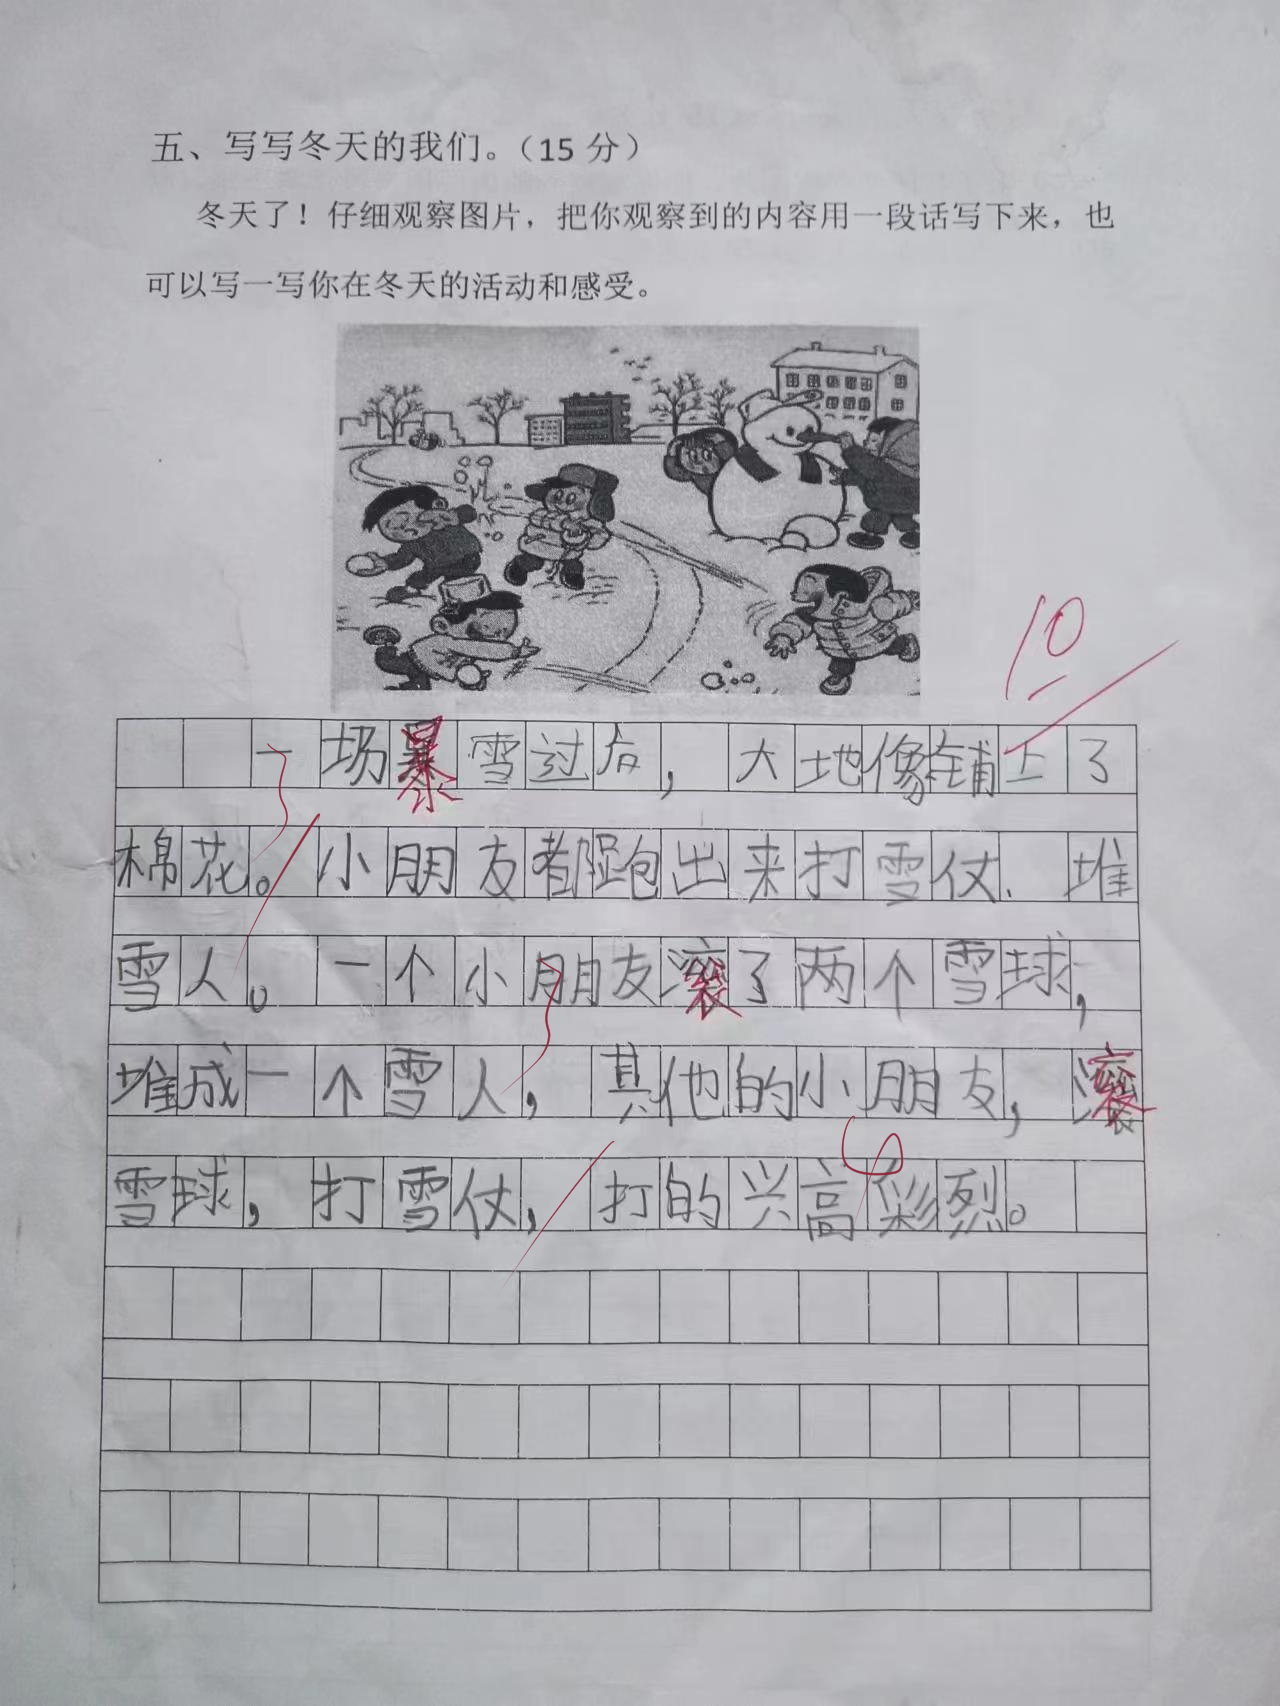 五、写写冬天的我们。（15 分）
冬天了！仔细观察图片，把你观察到的内容用一段话写下来，也
可以写一写你在冬天的活动和感受。
10
一场暴雪过后，大地像铺上了
棉花。小朋友都跑出来打雪仗、堆
雪人。一个小朋友滚了两个雪球，
堆成一个雪人，其他的小朋友，滚
雪球，打雪仗，打的兴高彩烈。